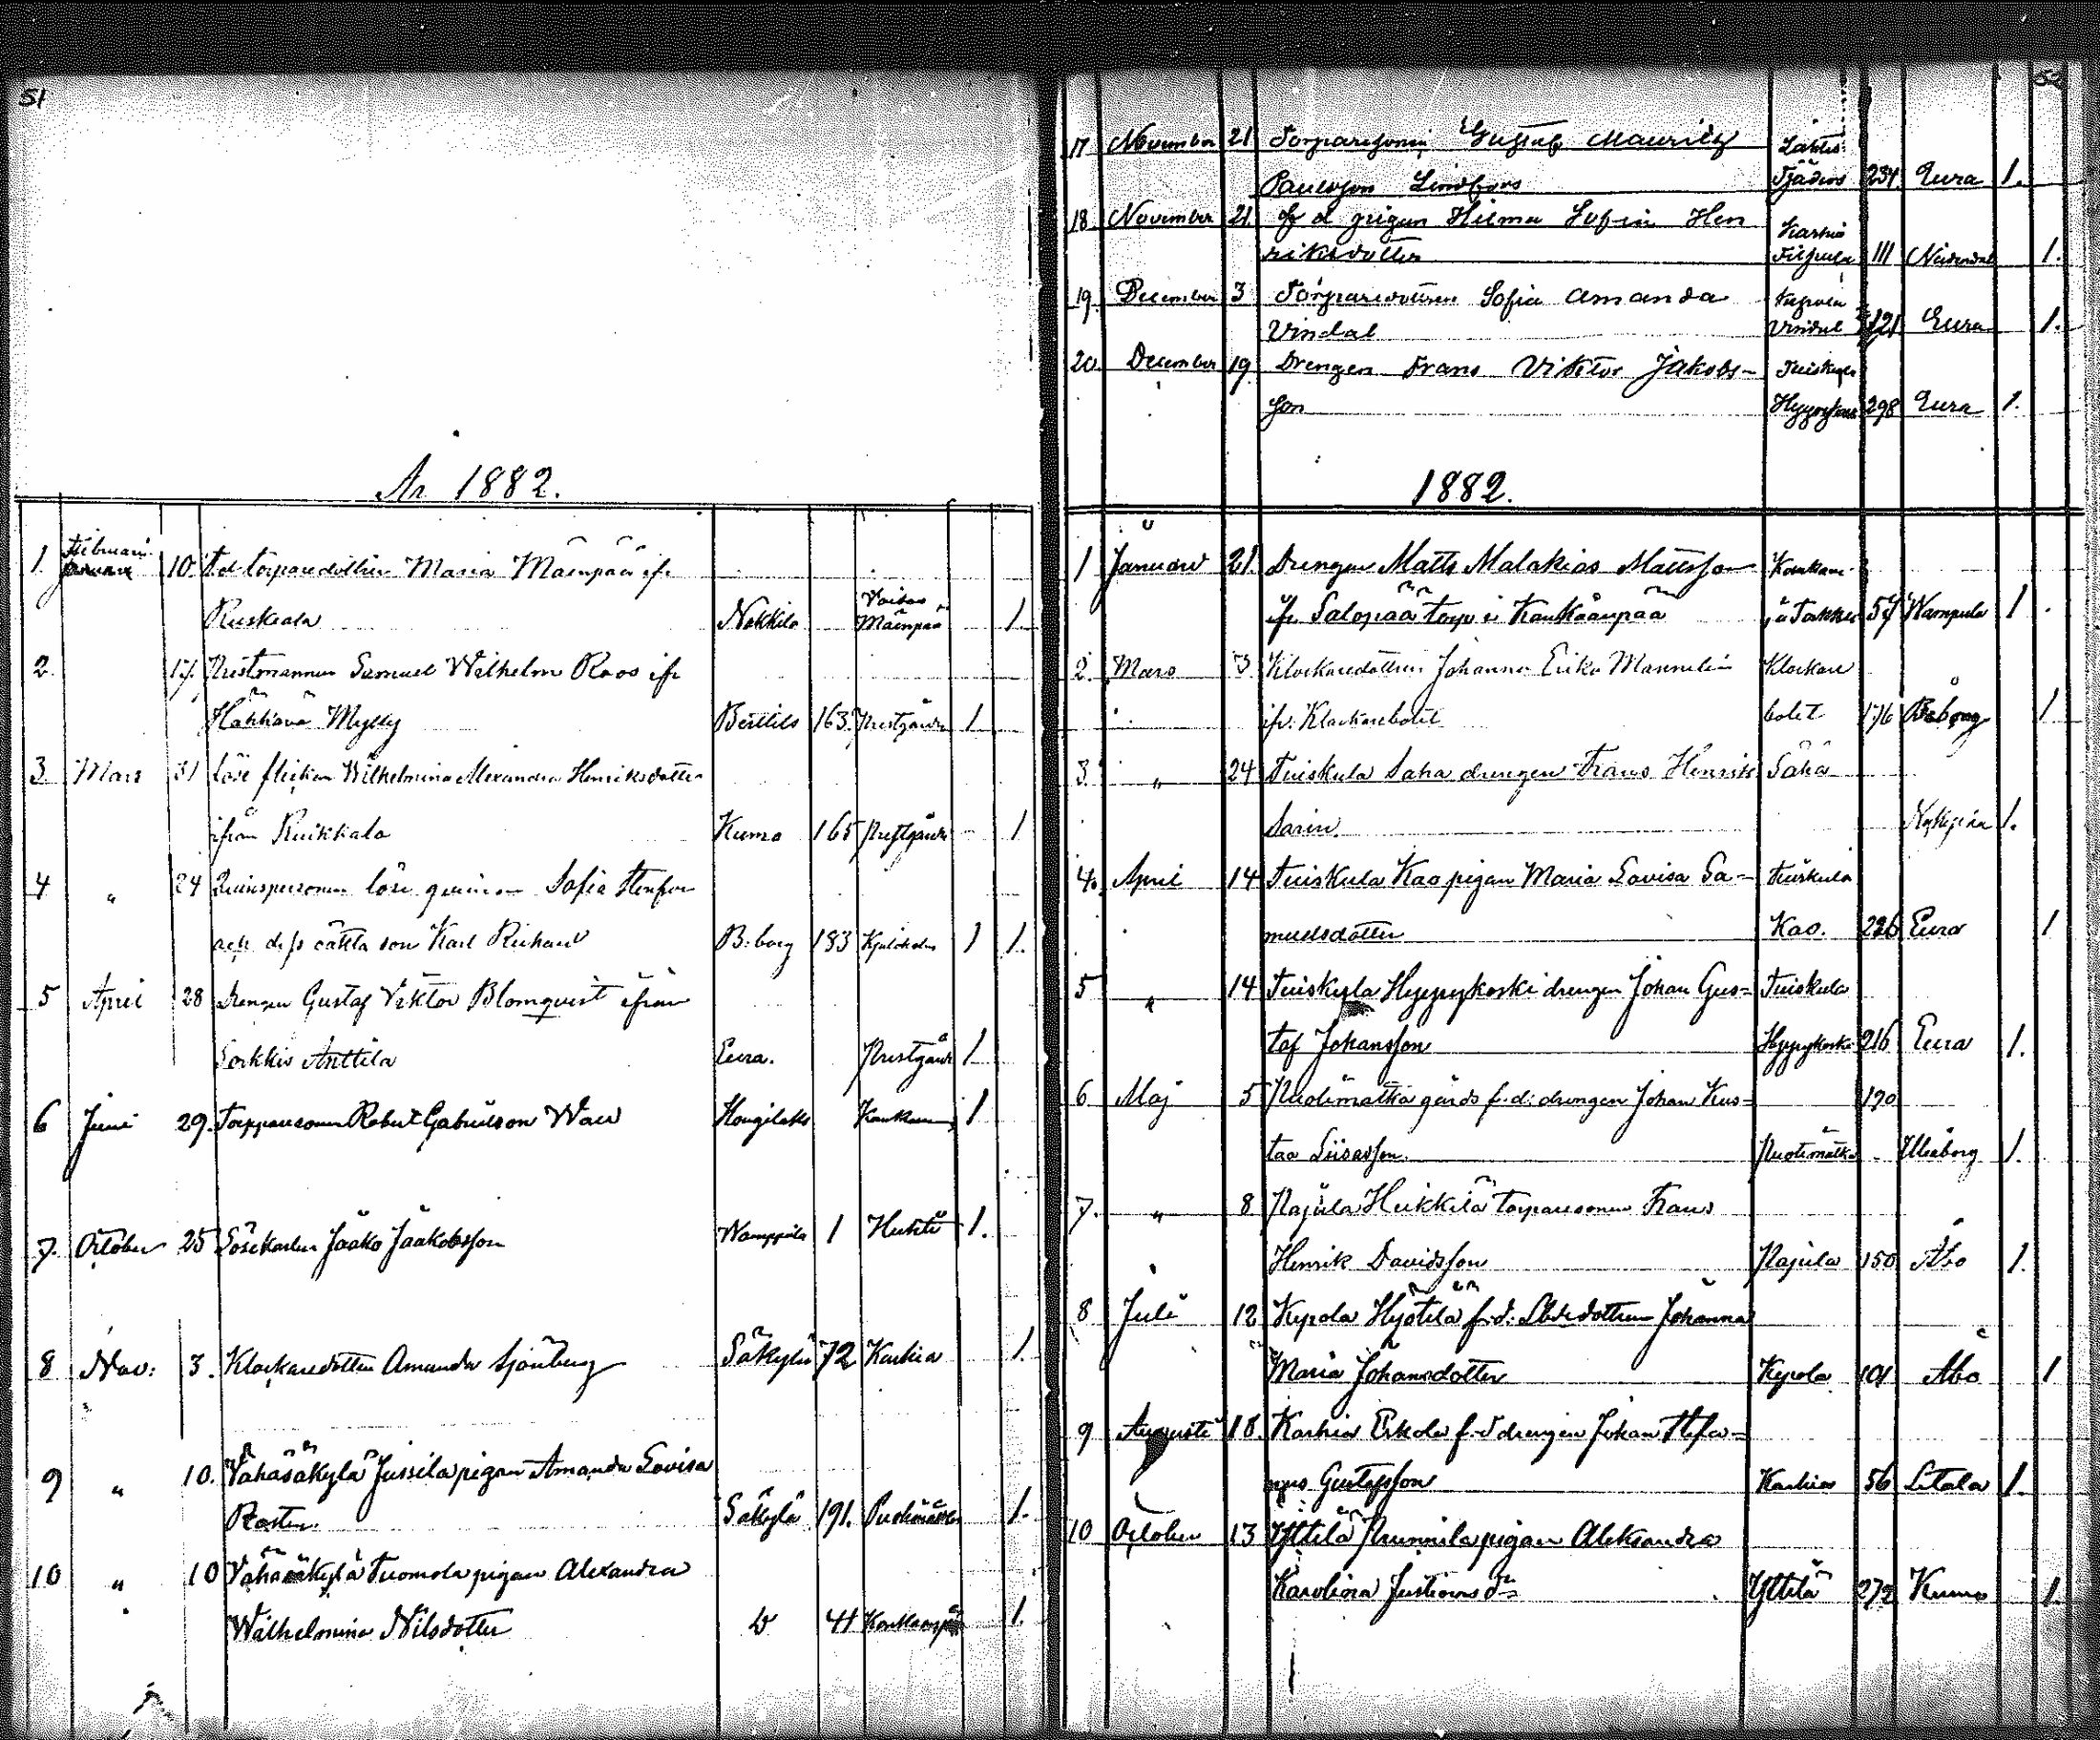 51
År 1882.
1. Februari 10. f.d. torparedottern Maria Mäenpää ifr.
Januari
Ruskiala Nakkila Voitoo Mäenpää 1.
2. 17. Prestmannen Samuel Wilhelm Roos ifr
Mylly 163. Prestgårdn 1
3 Mars 31 Lösa flickan Wilhelmina Alexandra Henriksdotter
ifrån Ruikkala Kumo 165 Prestgårdn 1
4 " 24 löse qvinnan Sofia
och dess oäkta son Karl Richard B:borg 183 1 1.
5 April 28 Drengen Gustaf Viktor Blomqvist ifrån
Sorkkis Anttila Eura. Prestgårdn 1
6 Juni 29. Torpparesonen Robert Gabrielsson Hongilaks 1
7. October 25 Lösekarlen Jaako Jaakobsson Wamppula 1 Huhti 1.
8 Nov: 3. Klockaredottern Amanda Sjönberg Säkylä 72 Karhia 1.
9 " 10. Vähäsäkylä Jussila pigan Amanda Lovisa
Rosten. Säkylä 191. 1.
10 " 10 Vähäsäkylä Tuomola pigan Alexandra
Wilhelmina Nilsdotter D 41 Kaukaanpää 1.
52
17 November 21 Torparesonen Gustaf Mauritz
Paulsson Lindfors 234 Eura 1.
18. November 21. f d pigan Hilma Sofia Hen
riksdotter Karhia Filpula 111 Nådendal 1.
19. December 3 Torparedottren Sofia Amanda Kepola
Vindal Vindal 121 Eura 1.
20. December 19 Drengen Frans Viktor Jakobs- Tuiskula
son 298 Eura 1.
1882.
1 Januari 21. Drengen Matts Malakias Mattsson
ifr. Salopää torp i Kaukåånpää 57 Wampula 1.
2. Mars 3 Klockaredottren Johanna Erika Mannelin Klockare
ifr. Klockarebolet bolet 176 1
3. " 24 Tuiskula Saha drengen Frans Henrik Saha
Sarin. Nykyrka 1.
4. April 14 Tuiskula Kao pigan Maria Lovisa Sa- Tuiskula
muelsdotter Kao. 226 Eura 1
5 " 14 Tuiskula Hyypykoski drengen Johan Gus- Tuiskula
taf Johansson Hyypykoski 216 Eura 1.
6 Maj 5 Puolimatka gårds f.d. drengen Johan Kus- 190
taa Liisasson. Puolimatka Uleåborg 1.
7. " 8 Pajula Heikkilä torparesonen Frans
Henrik Davidsson Pajula 150 Åbo 1.
8 Juli 12 Kepola Hyötilä f.d. dottren Johanna
Maria Johansdotter Kepola 101 Åbo 1
9 Augusti 18. Karhia Erkola f.d drengen Johan Stefa-
nus Gustafsson Karhia 56 Letala 1.
10 October 13 Yttilä Prunnila pigan Aleksandra
Karolina Justinus dr Yttilä 272 Kumo 1.